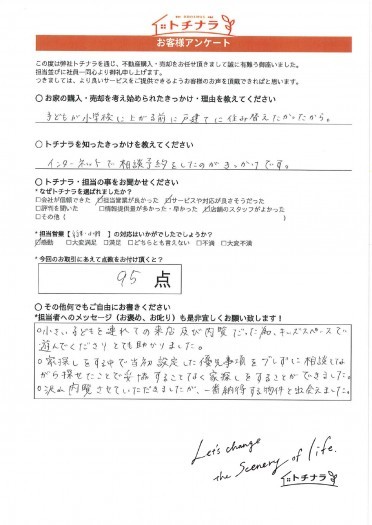 トチナラ
お客様アンケート
この度は弊社トチナラを通じ、不動産購入・売却をお任せ頂きまして誠に有難う御座いました。
担当並びに社員一同心より御礼申し上げます。
つきましては、より良いサービスをご提供できるようお客様のお声を頂戴できればと思います。
〇 お家の購入・売却を考え始められたきっかけ・理由を教えてください
子どもが小学校に上がる前に戸建てに住み替えたかったから。
〇 トチナラを知ったきっかけを教えてください
インターネットで相談予約をしたのがきっかけです。
〇 トチナラ・担当の事をお聞かせください
*なぜトチナラを選ばれましたか？
□会社が信頼できた ☑担当営業が良かった ☑サービスや対応が良さそうだった
□評判を聞いた □情報提供量が多かった・早かった ☑店舗のスタッフがよかった
□その他（ ）
*担当営業【 ・小川 】の対応はいかがでしたでしょうか？
☑感動 □大変満足 □満足 □どちらとも言えない □不満 □大変不満
*今回のお取引にあえて点数をお付け頂くと？
95 点
〇 その他何でもご自由にお書きください
*担当者へのメッセージ（お褒め、お叱り）も是非宜しくお願い致します！
○小さい子どもを連れての来店及び内覧だった為、キッズスペースで
遊んでくださりとても助かりました。
○家探しをする中で当初設定した優先事項をブレずに相談しな
がら探せたことで妥協することなく家探しをすることができました。
○沢山内覧させていただきましたが、一番納得する物件と出会えました。
Let's change
the Scenery of life.
トチナラ